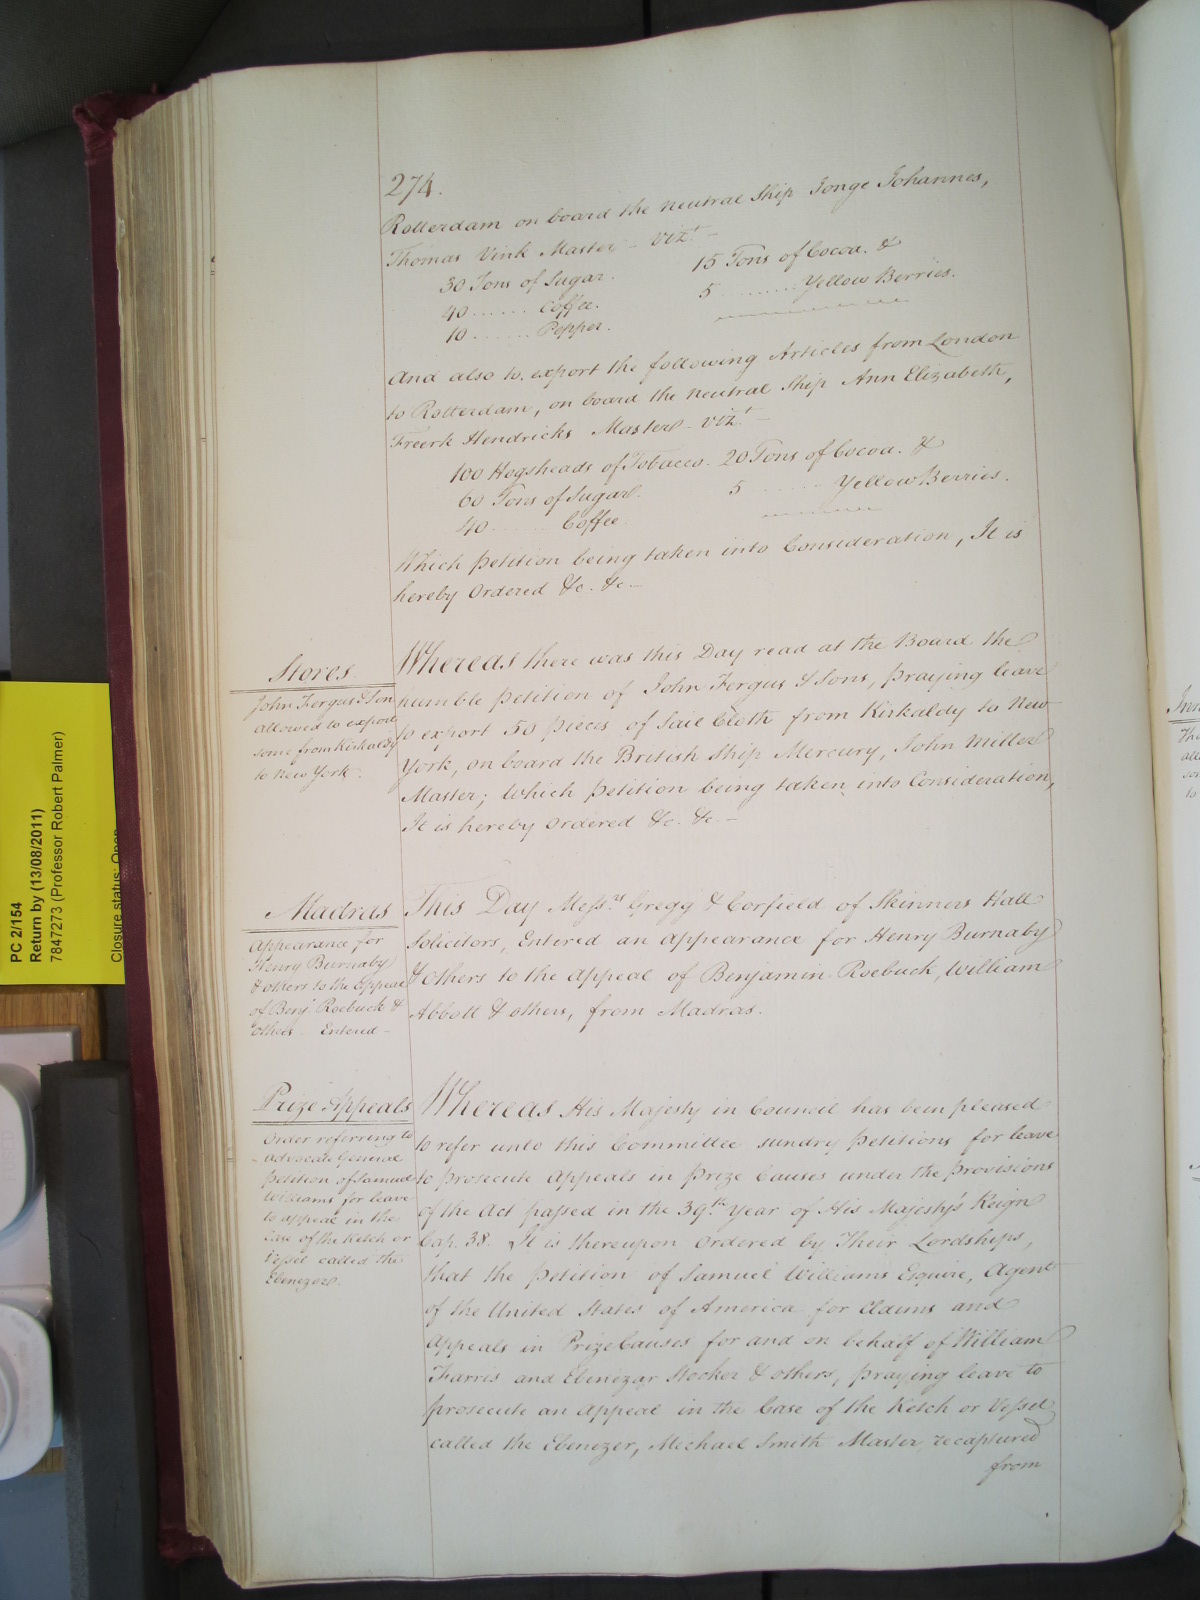 274.
Rotterdam on board the neutral Ship Jonge Johannes,
Thomas Vink Master - Vizt. -
30 Tons of Sugar. 15 Tons of Cocoa. &
40 ...... Coffee. 5 ......... Yellow Berries.
10 ...... Pepper.
And also to export the following Articles from London
to Rotterdam, on board the neutral Ship Ann Elizabeth,
Freerk Hendricks Master - Vizt. -
100 Hogsheads of Tobacco. 20 Tons of Cocoa. &
60 Tons of Sugar. 5 ........ Yellow Berries.
40 ........ Coffee
Which Petition being taken into Consideration, It is
hereby Ordered &c. &c. -
Stores.
John Fergus & Son
allowed to export
some from Kirkaldy
to New York.
Whereas there was this Day read at the Board the
humble Petition of John Fergus & Sons, praying leave
to export 50 pieces of Sail Cloth from Kirkaldy to New
York, on board the British Ship Mercury, John Miller
Master; Which Petition being taken into Consideration,
It is hereby Ordered &c. &c. -
Madras
Appearance for
Henry Burnaby
& others to the Appeal
of Benj. Roebuck &
others. Entered -
This Day Messrs. Gregg & Corfield of Skinners Hall
Solicitors, Entered an Appearance for Henry Burnaby
& others to the Appeal of Benjamin Roebuck, William
Abbott & others, from Madras.
Prize Appeals
Order referring to
Advocate General
Petition of Samuel
Williams for leave
to appeal in the
Case of the Ketch or
Vessel called the
Ebenezer.
Whereas His Majesty in Council has been pleased
to refer unto this Committee sundry Petitions for leave
to prosecute Appeals in Prize Causes under the provisions
of the Act passed in the 39th. Year of His Majesty's Reign
Cap. 38. It is thereupon Ordered by Their Lordships,
that the Petition of Samuel Williams Esquire, Agent
of the United States of America for Claims and
Appeals in Prize Causes for and on behalf of William
Farris and Ebenezar Stocker & others, praying leave to
prosecute an Appeal in the Case of the Ketch or Vessel
called the Ebenezer, Michael Smith Master, recaptured
from
PC 2/154
Return by (13/08/2011)
7847273 (Professor Robert Palmer)
Closure status: Open